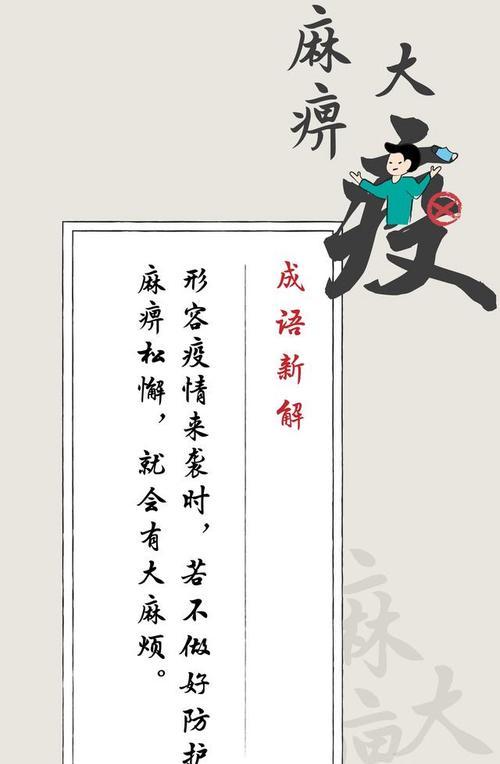 麻痹
大疫
成语新解
形容疫情来袭时，若不做好防护
麻痹松懈，就会有大麻烦。
麻
大